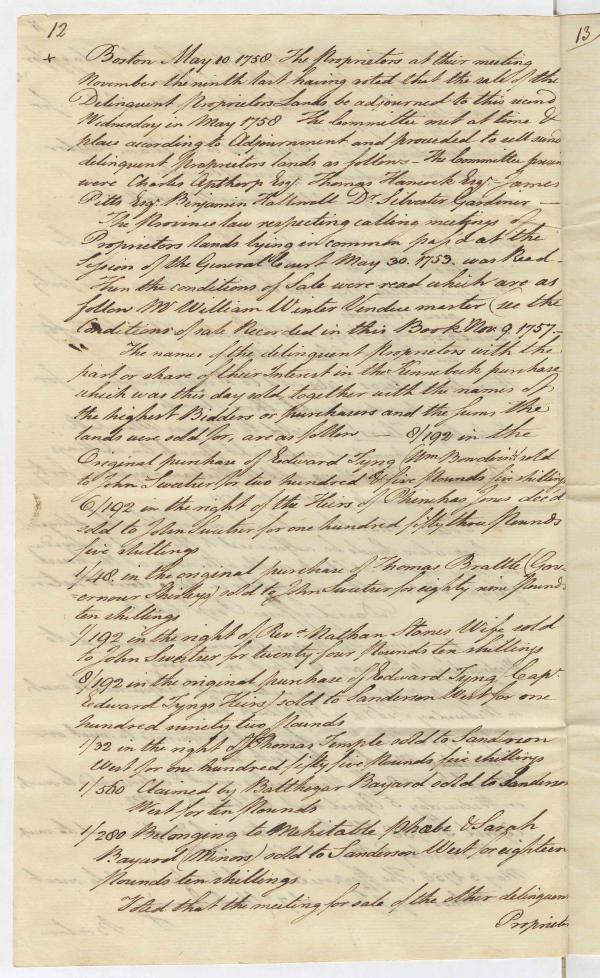 12
13
+ Boston May 10 1758. The Proprietors at their meeting
November the ninth last having voted that the sale of the
Delinquent Proprietors Lands be adjourned to this second
Wednesday in May 1758 The Committee met at time &
place according to Adjournment and proceeded to sell
delinquent Proprietors lands as follows – The Committee
were Charles Apthorp Esqr. Thomas Hancock Esqr. James
Pitts Esq. Benjamin Hallowell Dr. Silvester Gardiner —
The Province law respecting calling meetings of
Proprietors lands lying in common pass'd at the
Session of the General Court May 30. 1753. was Read –
Then the conditions of Sale were read which are as
follow Mr William Winter Vendue master (see the
Conditions of sale Recorded in this Book Nov. 9. 1757. –
The names of the delinquent Proprietors with the
part or share of their Interest in the Kennebeck purchase
which was this day sold, together with the names of
the highest Bidders or purchasers and the sums the
lands were sold for, are as follow — 8/192 in the
Original purchase of Edward Tyng (Wm Bowdoin) sold
to John Sweetser for two hundred & five Pounds five shillings
6/192 in the right of the Heirs of Phinehas Jones dec'd
sold to John Sweetser for one hundred fifty three Pounds
five shillings
1/48 in the original purchase of Thomas Brattle (Gov-
ernour Shirleys) sold to John Sweetser for eighty nine Pounds
ten shillings
1/192 in the right of Revd. Nathan Stones Wife sold
to John Sweetser for twenty four Pounds ten shillings
8/192 in the original purchase of Edward Tyng (Capt.
Edward Tyngs Heirs) sold to Sanderson West for one
hundred ninety two Pounds
1/32 in the right of Thomas Temple sold to Sanderson
West for one hundred fifty five Pounds, five shillings
1/560 Claimed by Balthazar Bayard sold to Sanderson
West for ten Pounds
1/280 Belonging to Mehitable Phœbe & Sarah
Bayard (Minors) sold to Sanderson West for eighteen
Pounds ten shillings
Voted that the meeting for sale of the other delinquent
Proprietor